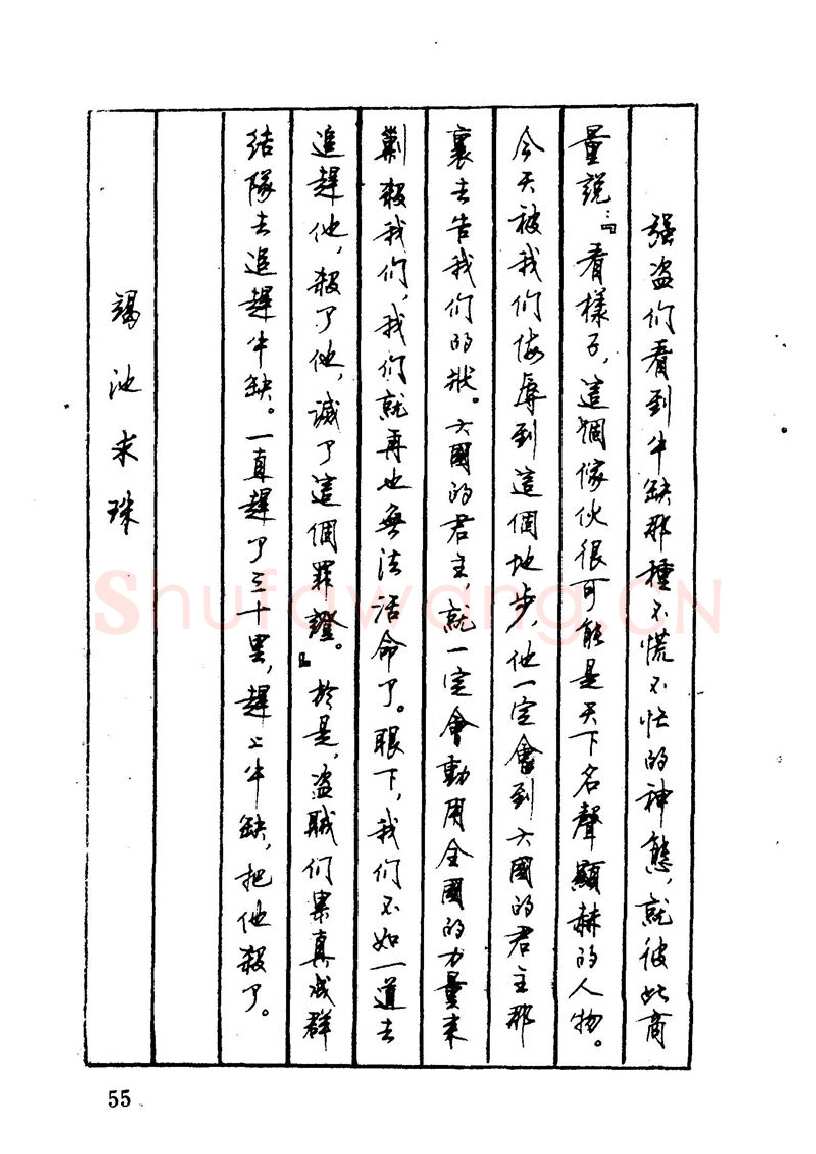 强盗们看到牛缺那種不慌不忙的神態，就彼此商
量説：“看樣子，這個傢伙很可能是天下名聲顯赫的人物。
今天被我们侮辱到這個地步，他一定會到大國的君主那
裏去告我们的狀。大國的君主，就一定會動用全國的力量来
剿殺我们，我们就再也無法活命了。眼下，我们不如一道去
追趕他，殺了他，滅了這個罪證。”於是，盗賊们果真成群
结隊去追趕牛缺。一直趕了三十里，趕上牛缺，把他殺了。
竭池求珠
Shufawang.CN
55